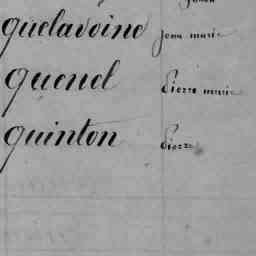 quelavoine jean marie
quenel Pierre marie
quinton Pierre